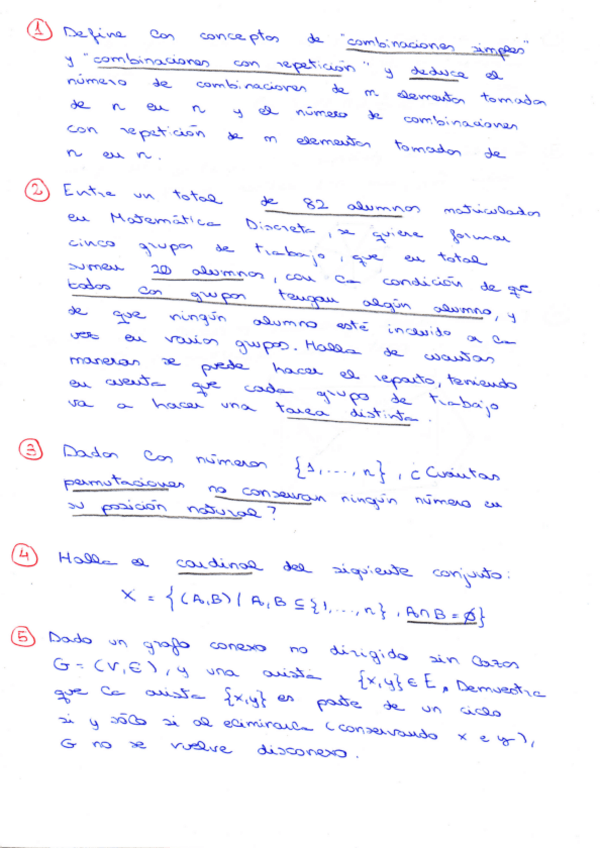 ① Define los conceptos de "combinaciones simples"
y "combinaciones con repetición" y deduce el
número de combinaciones de m elementos tomados
de n en n y el número de combinaciones
con repetición de m elementos tomados de
n en n.
② Entre un total de 82 alumnos matriculados
en Matemática Discreta, se quiere formar
cinco grupos de trabajo, que en total
sumen 20 alumnos, con la condición de que
todos los grupos tengan algún alumno, y
de que ningún alumno esté incluido a la
vez en varios grupos. Halla de cuantas
maneras se puede hacer el reparto, teniendo
en cuenta que cada grupo de trabajo
va a hacer una tarea distinta.
③ Dados los números {1,...,n}, ¿Cuántas
permutaciones no conservan ningún número en
su posición natural?
④ Halla el cardinal del siguiente conjunto:
X = {(A,B) / A,B ⊆ {1,...,n}, A∩B = ∅}
⑤ Dado un grafo conexo no dirigido sin lazos
G = (V,E), y una arista {x,y} ∈ E. Demuestra
que la arista {x,y} es parte de un ciclo
si y sólo si al eliminarla (conservando x e y),
G no se vuelve disconexo.